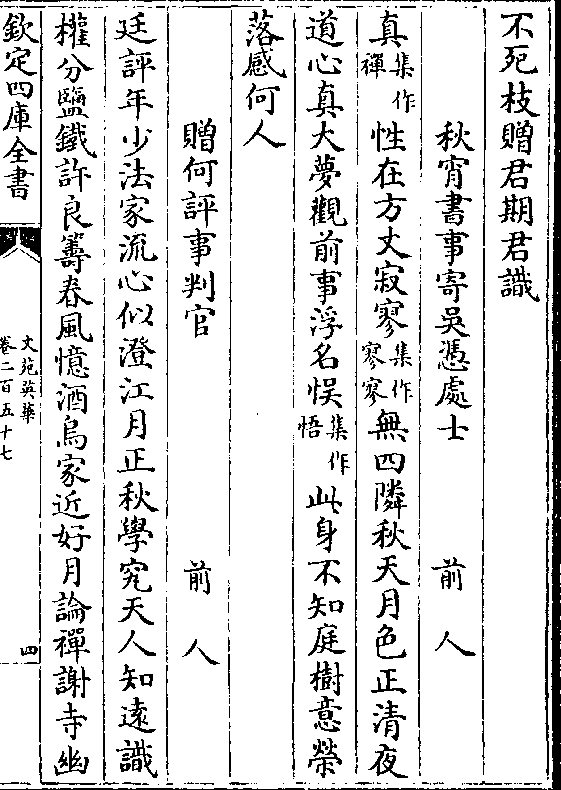 不死枝贈君期君識
秋宵書事寄吳憑處士 前人
真集作禪性在方丈寂寥集作寥寥無四隣秋天月色正清夜
道心真大夢觀前事浮名悮集作悟此身不知庭樹意榮
落感何人
贈何評事判官 前人
廷評年少法家流心似澄江月正秋學究天人知遠識
權分鹽鐵許良籌春風憶酒烏家近好月論禪謝寺幽
欽定四庫全書
文苑英華
卷二百五十七
四